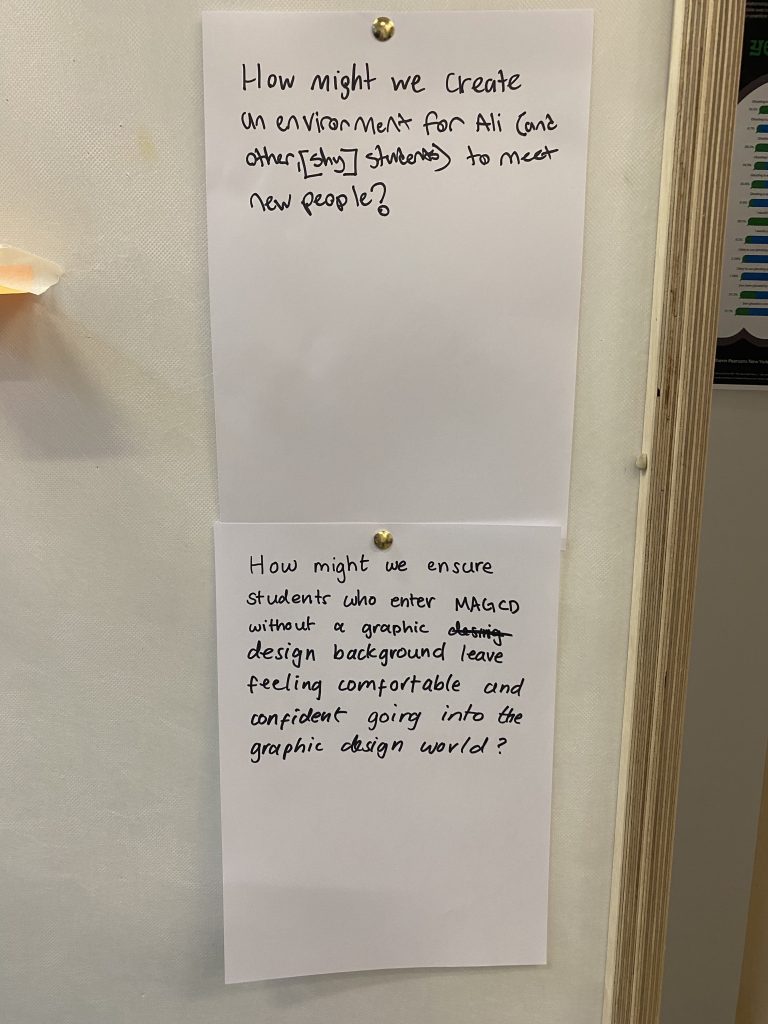 How might we create
an environment for Ali (and
other, [shy] students) to meet
new people?
How might we ensure
students who enter MAGCD
without a graphic desnig
design background leave
feeling comfortable and
confident going into the
graphic design world?